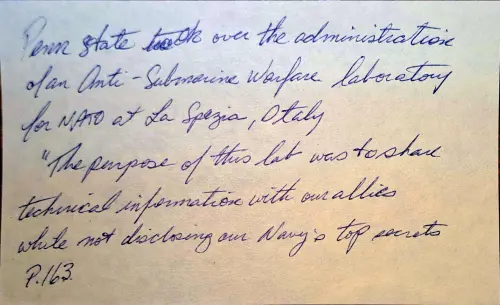 Penn State took over the administration
of an Anti-Submarine Warfare laboratory
for NATO at La Spezia, Italy
"The purpose of this lab was to share
technical information with our allies
while not disclosing our Navy's top secrets
P.163